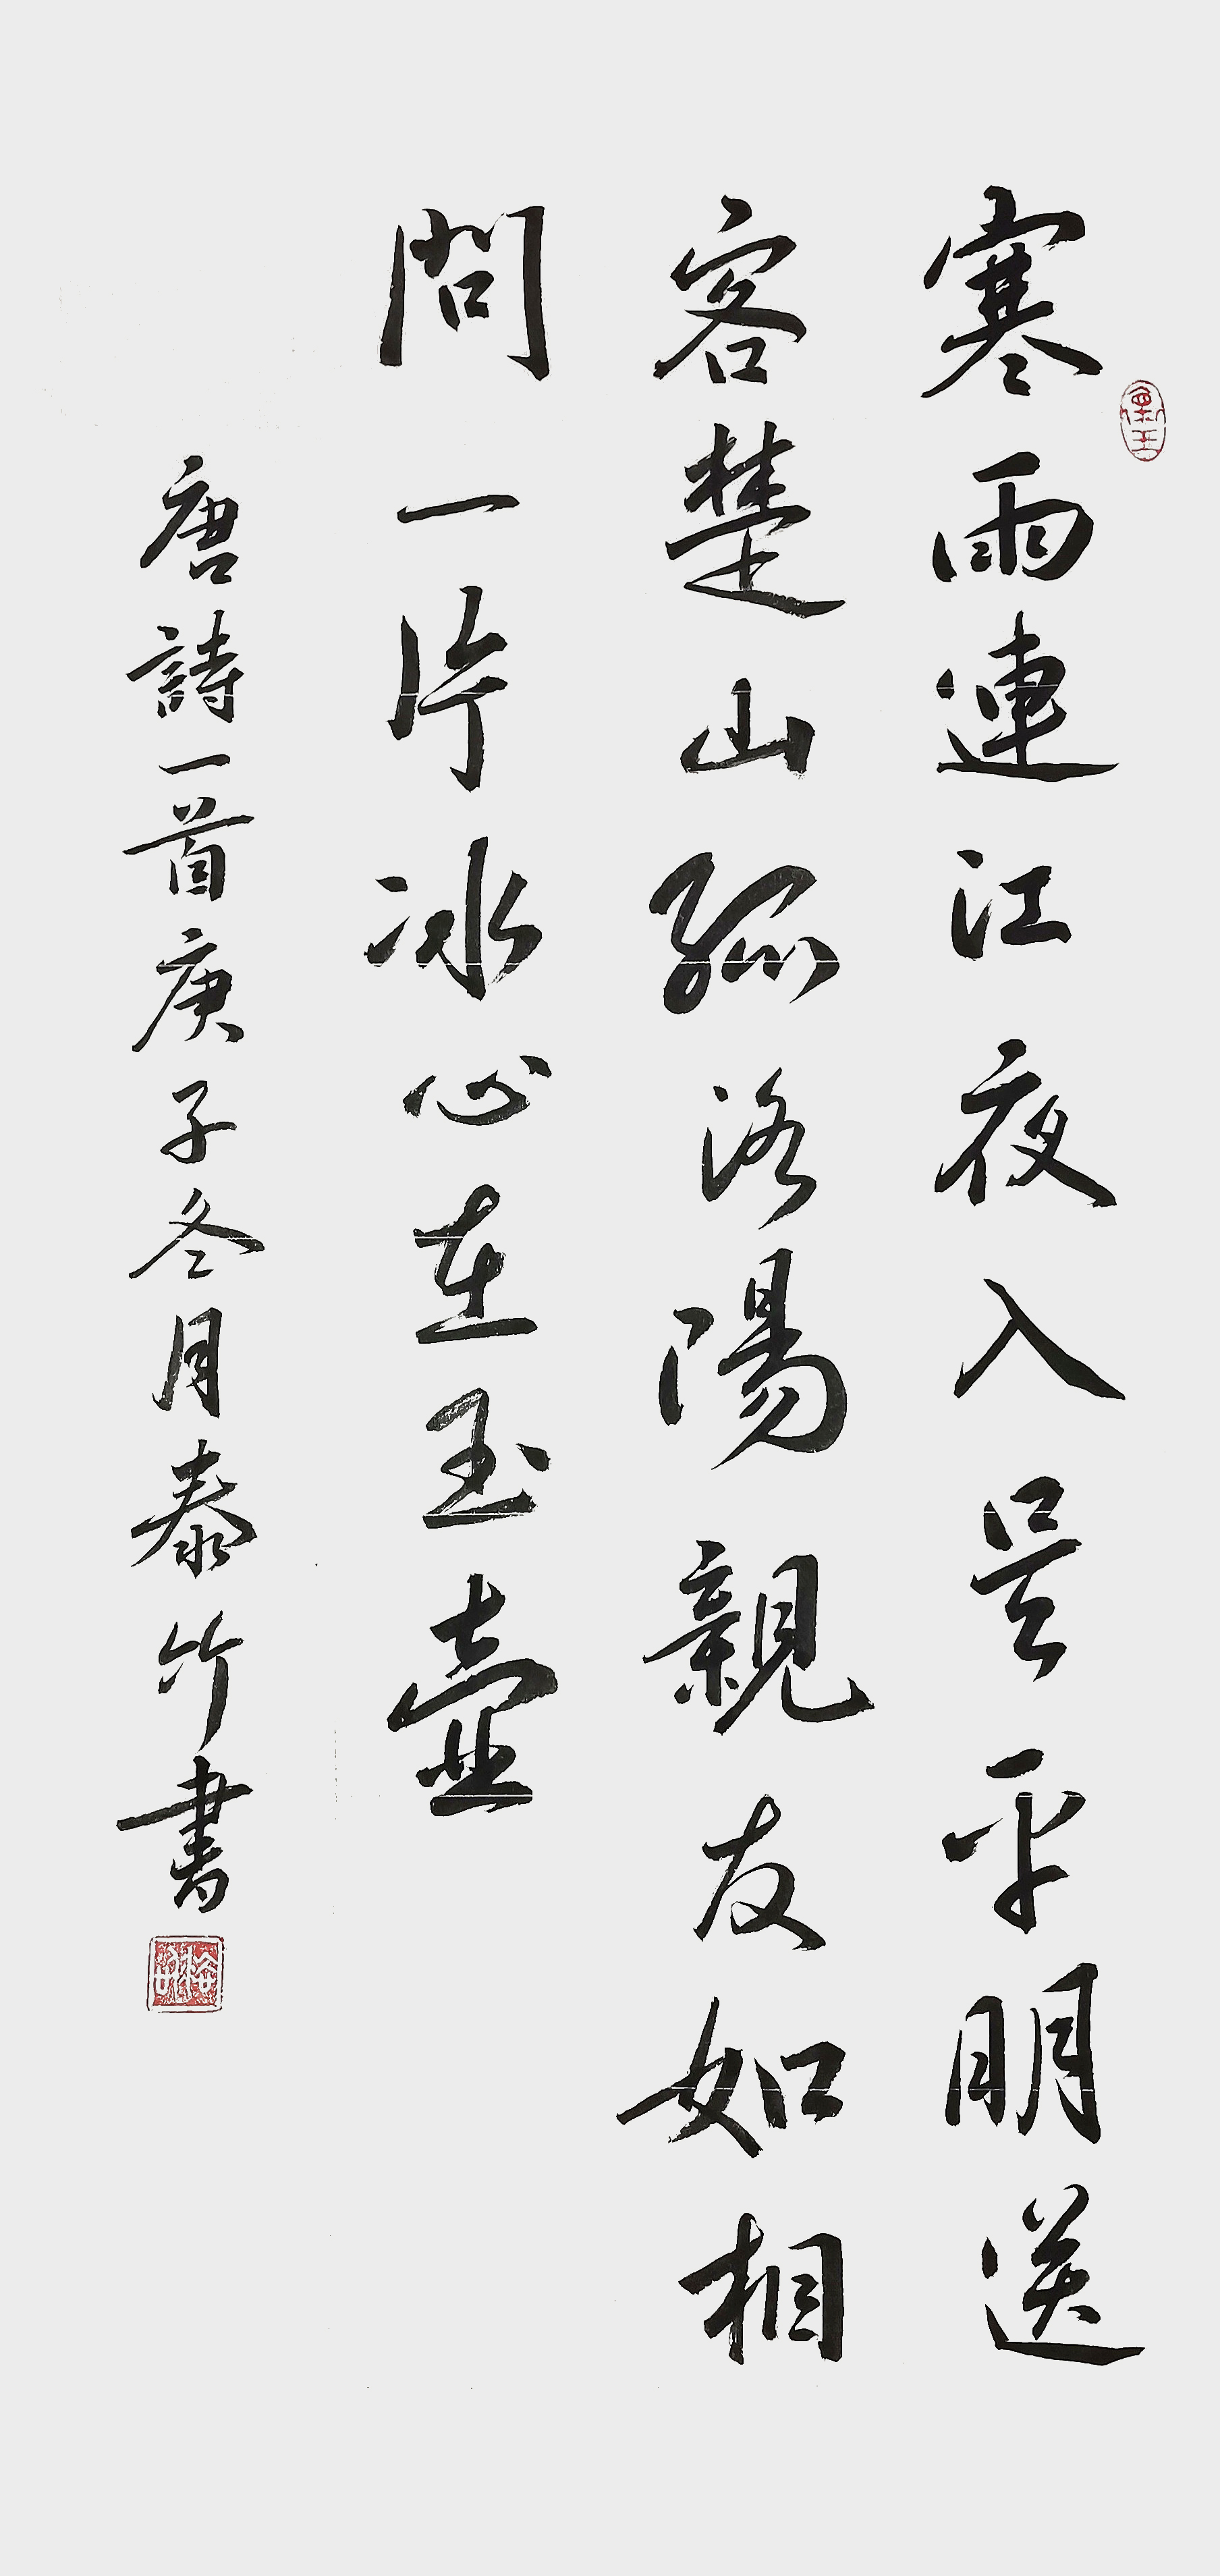 寒雨連江夜入吴平明送
客楚山孤洛陽親友如相
問一片冰心在玉壺
唐詩一首庚子冬月泰竹書